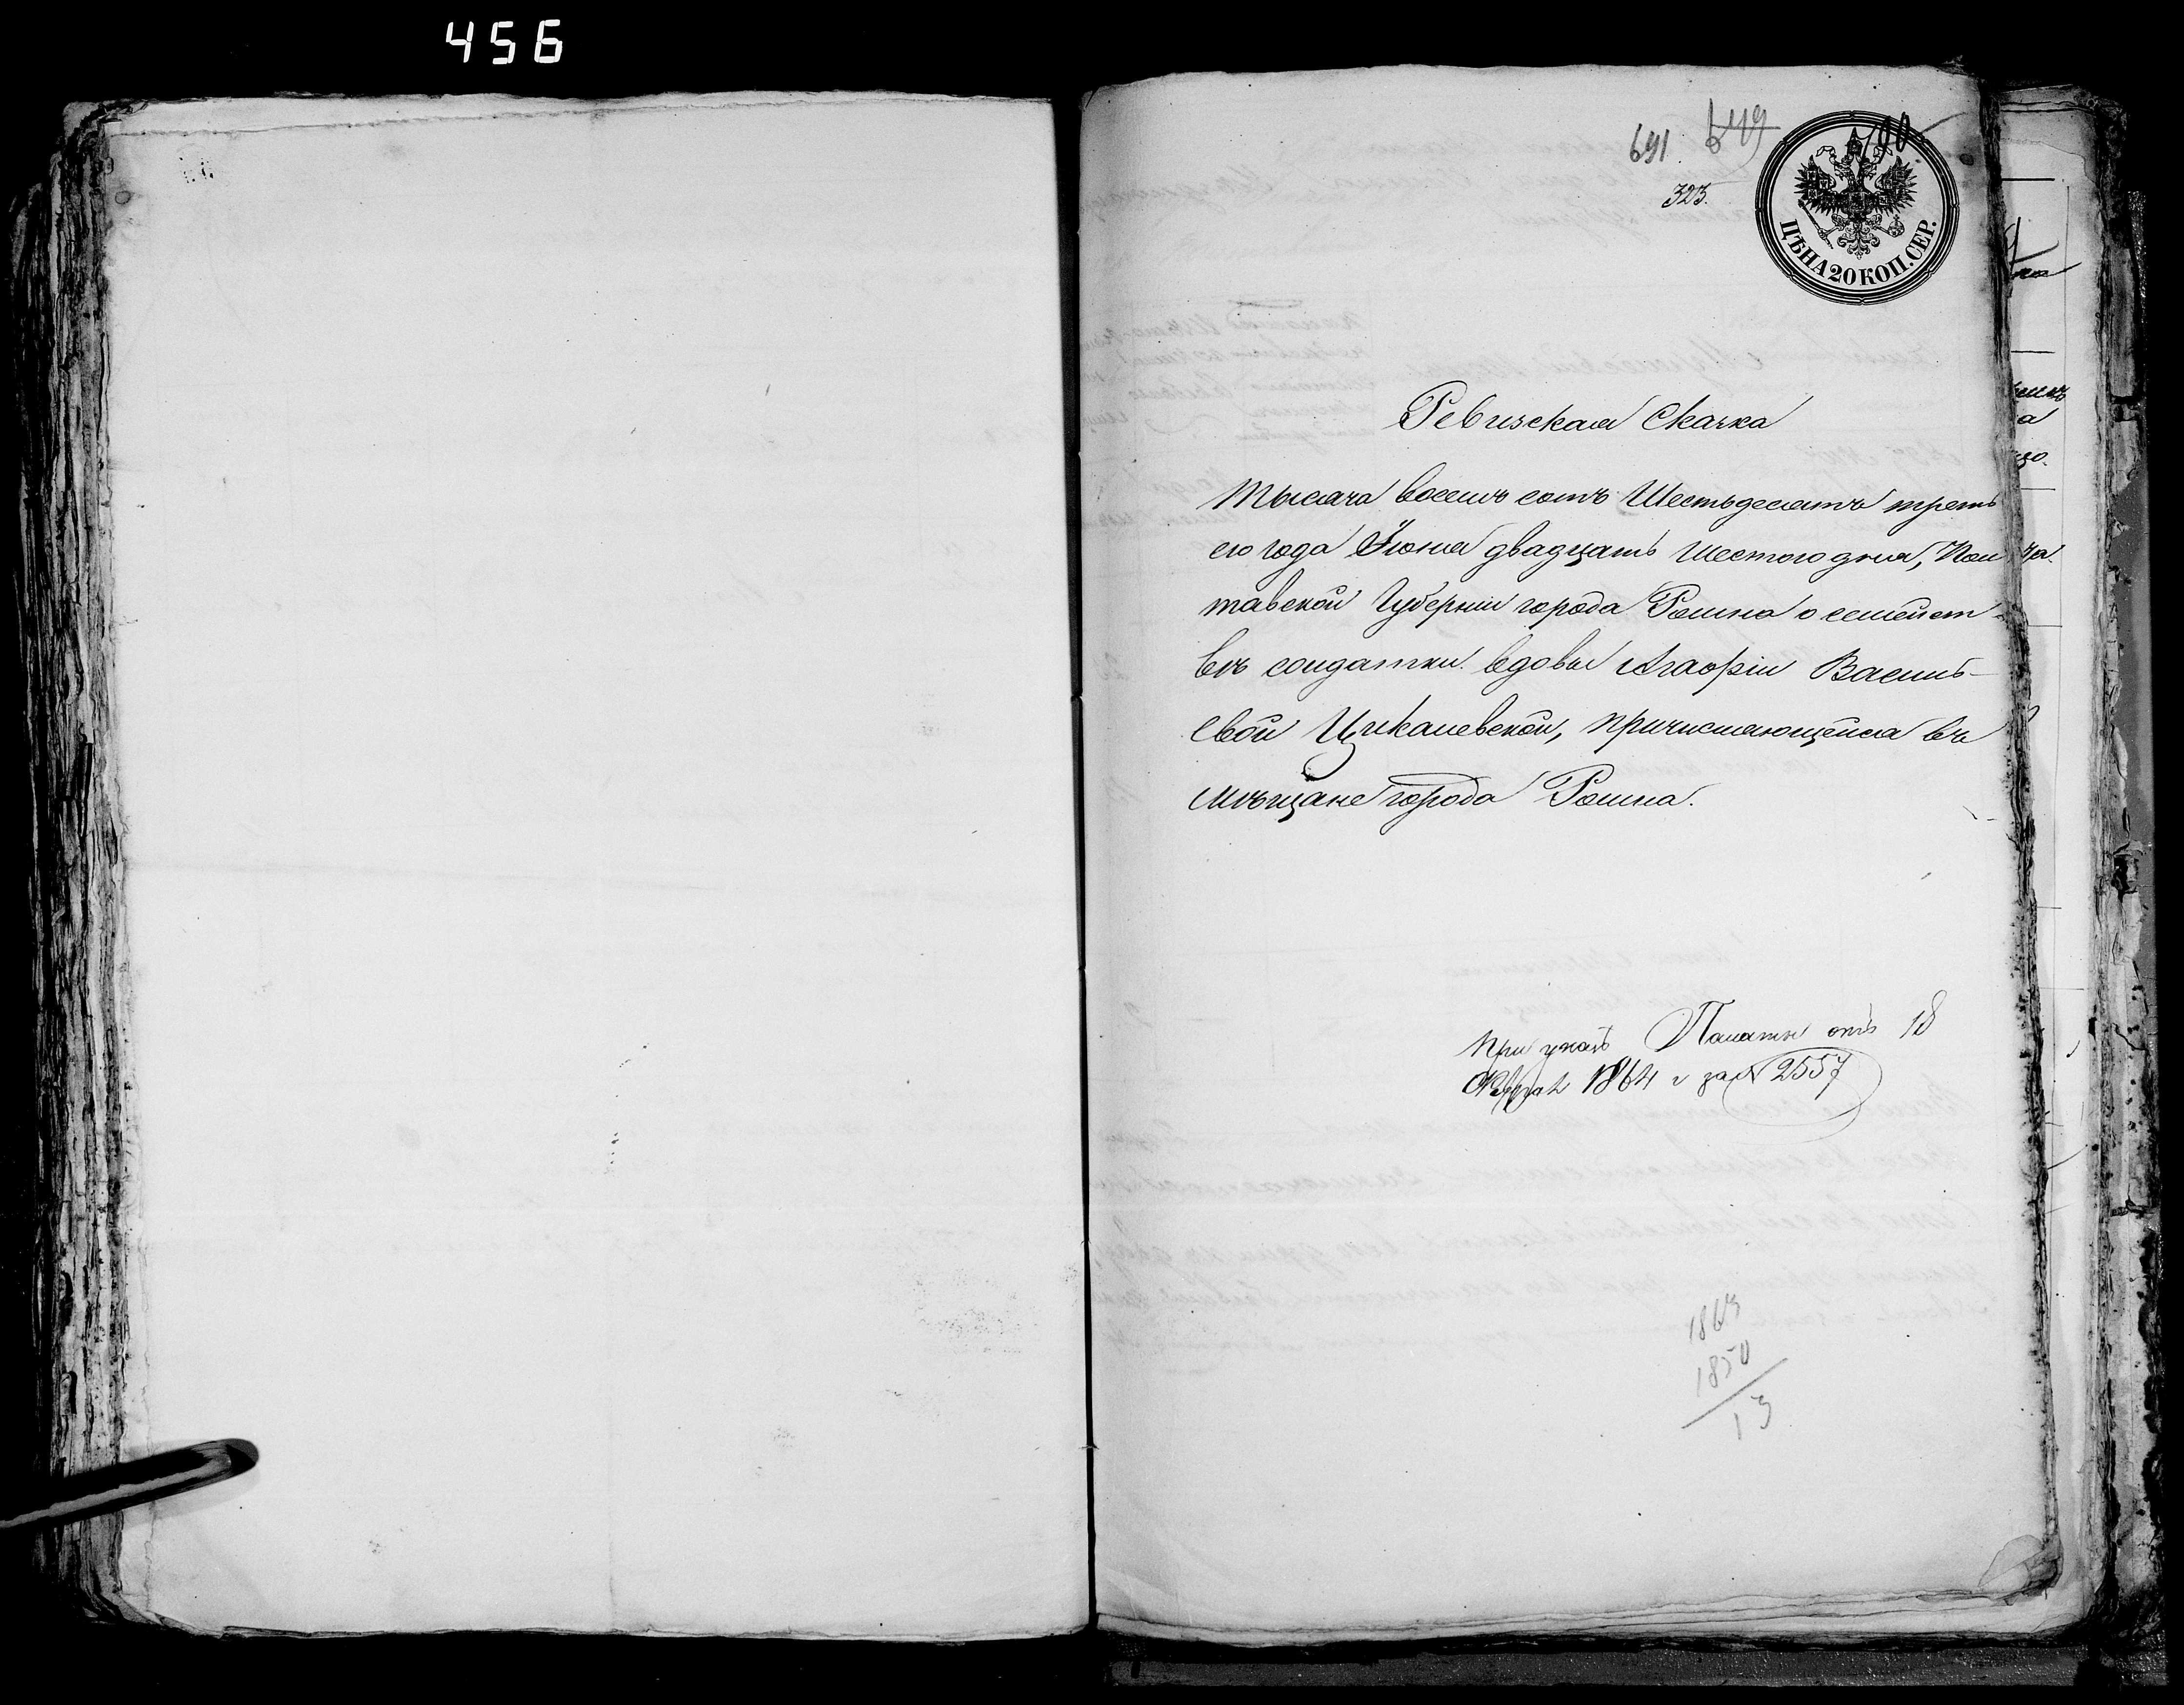 456
691. 649
790
323.
ЦѢНА 20 КОП. СЕР.
Ревизская Сказка
Тысяча восемь сотъ Шестьдесятъ треть
его года Іюня двадцать шестого дня, Пол
тавской Губерніи города Ромна о семейст-
вѣ солдатки вдовы Агафіи Василь-
евой Цикалевской, причисляющейся въ
мѣщане города Ромна.
При указѣ Палаты отъ 18
Феврал 1864 г за № 2557
1863
1850
13